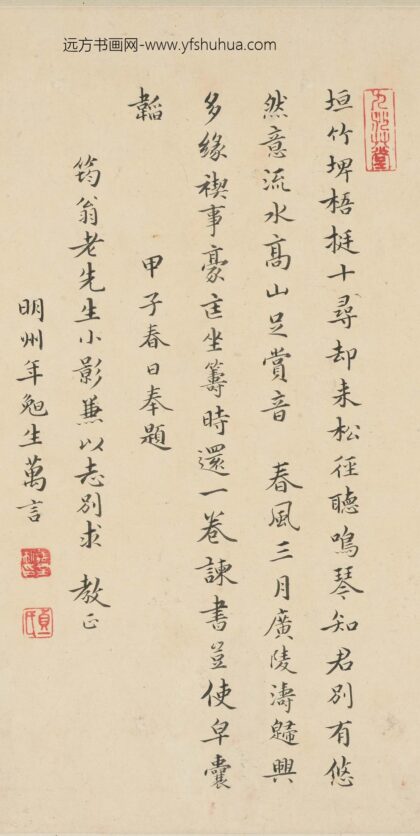 远方书画网-www.yfshuhua.com
垣竹埤梧挺十尋却来松径聽鳴琴知君別有悠
然意流水高山足賞音 春風三月廣陵濤歸興
多緣禊事豪 坐籌時還一卷諫書豈使皁囊
韜 甲子春日奉題
筠翁老先生小影兼以志別求 教正
明州年勉生萬言